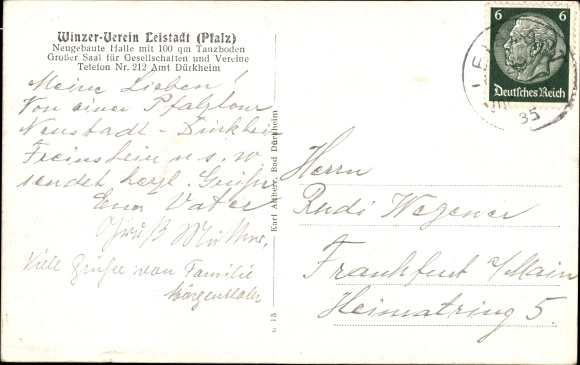 Winzer-Verein Leistadt (Pfalz)
Neugebaute Halle mit 100 qm Tanzboden
Großer Saal für Gesellschaften und Vereine
Telefon Nr. 212 Amt Dürkheim
Meine Lieben!
Von einer Pfalztour
Neustadt - Dürkheim
Freinsheim u. s. w
sendet herzl. Grüße
Euer Vater
Gruß Mutter,
Viele Grüße von Familie
Karl Altherr, Bad Dürkheim
6 6
Deutsches Reich
35
Herrn
Rudi Wegener
Frankfurt a/Main
Heimatring 5.